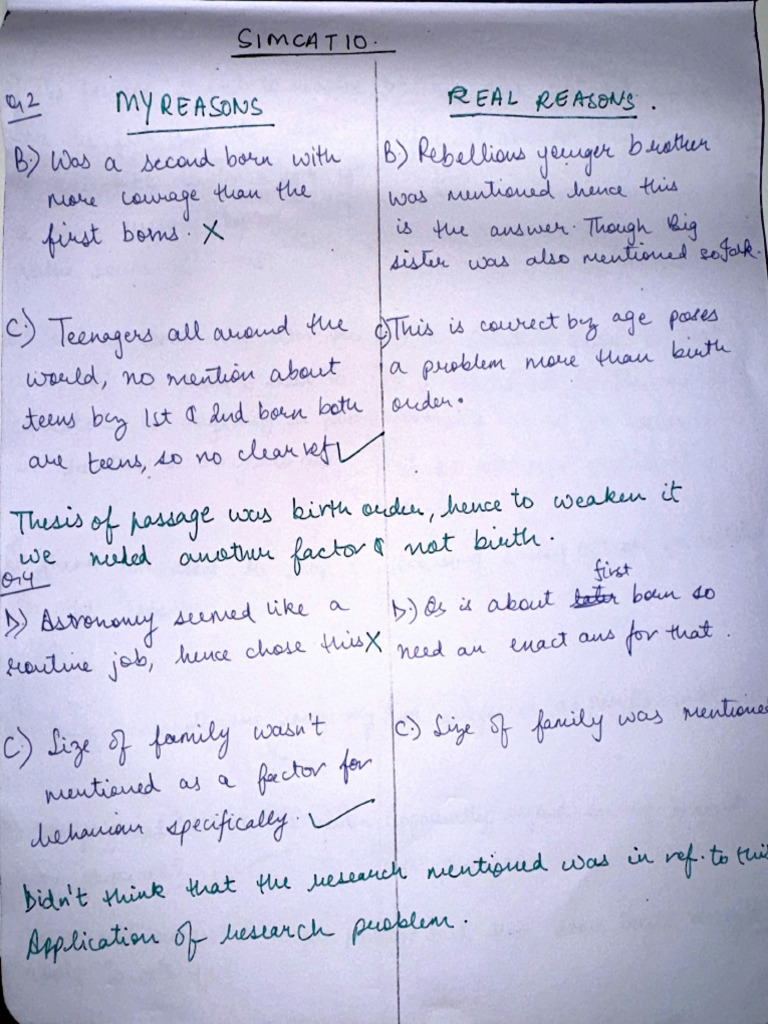 SIMCAT 10.
Q2
MY REASONS
REAL REASONS.
B.) Was a second born with
more courage than the
first borns. X
B.) Rebellious younger brother
was mentioned hence this
is the answer. Though Big
sister was also mentioned so
C.) Teenagers all around the
world, no mention about
teens bcz 1st & 2nd born both
are teens, so no clear ref ✓
C) This is correct bcz age poses
a problem more than birth
order.
Thesis of passage was birth order, hence to weaken it
we needed another factor & not birth.
Q4
D) Astronomy seemed like a
routine job, hence chose this X
D.) Qs is about later first born so
need an exact ans for that.
C.) Size of family wasn't
mentioned as a factor for
behaviour specifically. ✓
C.) Size of family was mentione
Didn't think that the research mentioned was in ref. to this
Application of research problem.